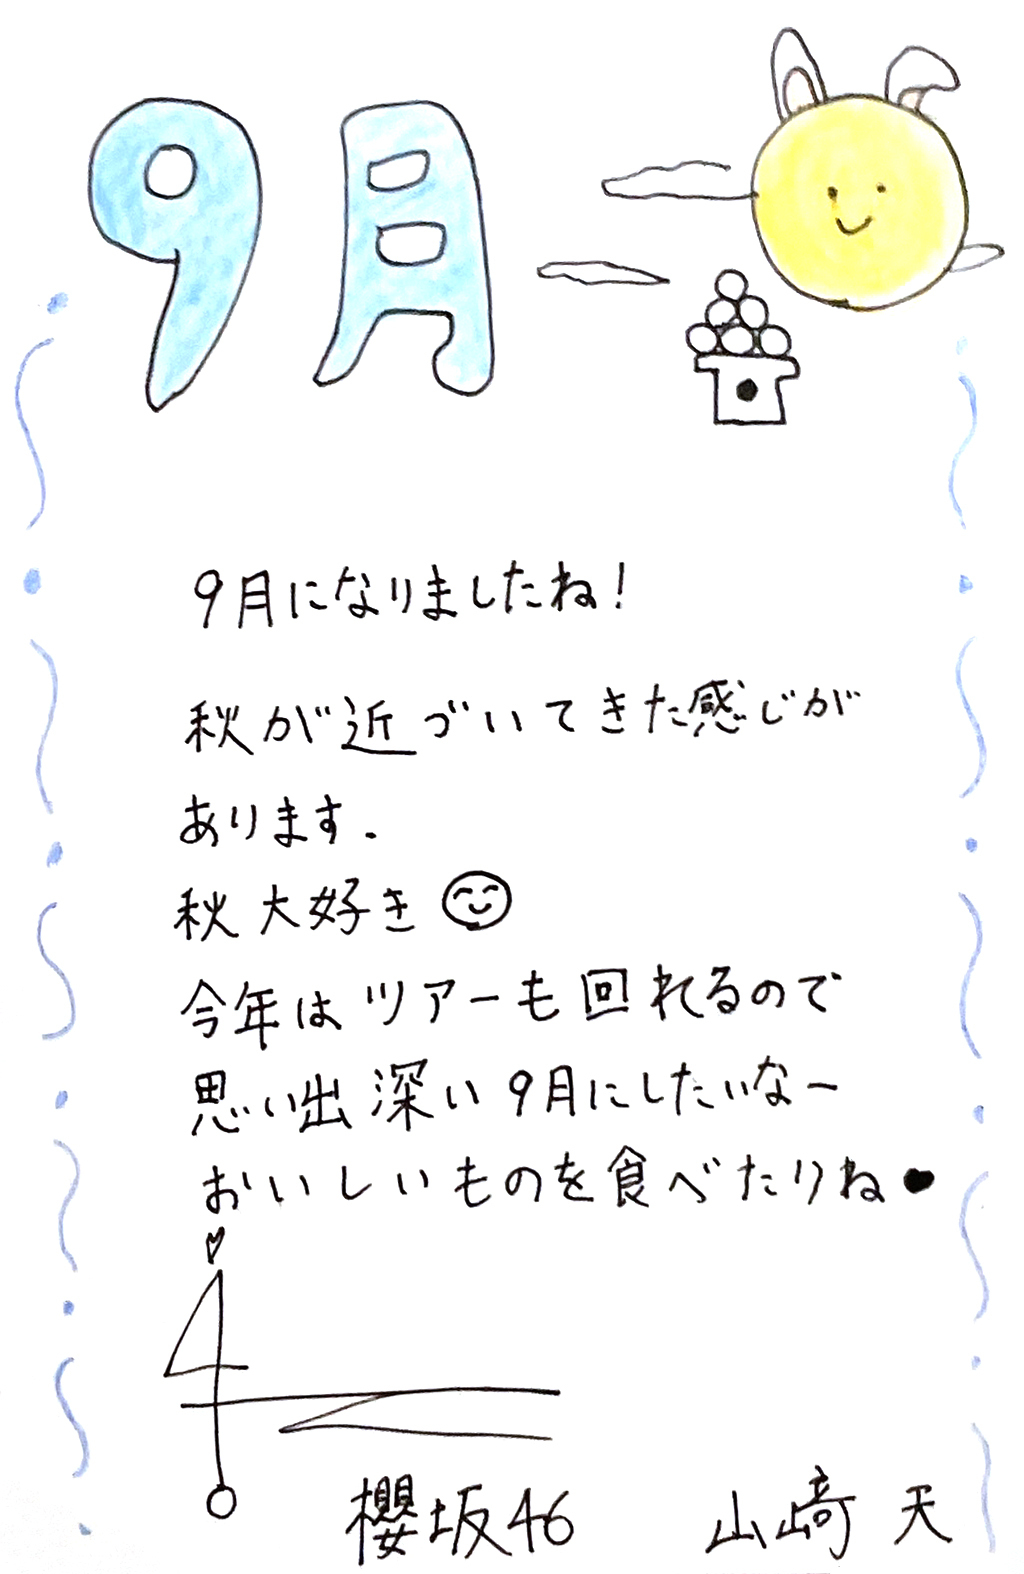 9月
9月になりましたね!
秋が近づいてきた感じが
あります.
秋大好き
今年はツアーも回れるので
思い出深い9月にしたいなー
おいしいものを食べたりね
櫻坂46 山﨑 天